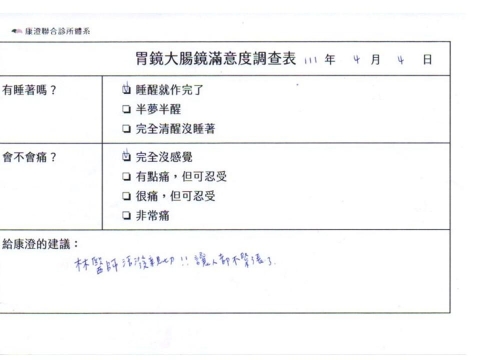 康澄聯合診所體系
胃鏡大腸鏡滿意度調查表 111 年 4 月 4 日
有睡著嗎？
睡醒就作完了
半夢半醒
完全清醒沒睡著
會不會痛？
完全沒感覺
有點痛，但可忍受
很痛，但可忍受
非常痛
給康澄的建議：
林醫師活潑親切!! 讓人都不緊張了.